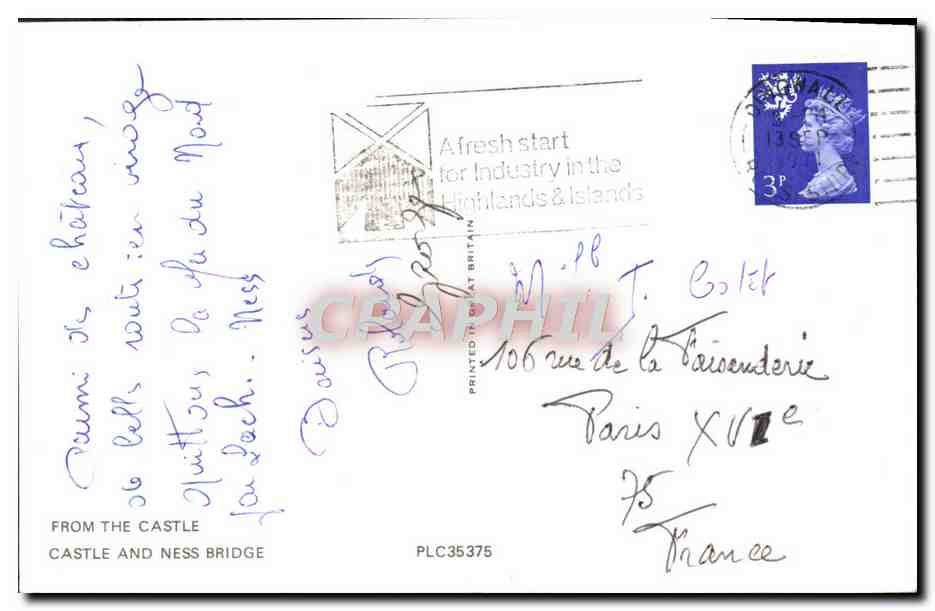 Parmi des châteaux,
de bells route en virage
quittons la
par Loch. Ness
Baisers
Rolande
Georges
A fresh start
for Industry in the
Highlands & Islands
3P
PRINTED IN GREAT BRITAIN
CPARHIL
Melle J. Costet
106 rue de la Faisanderie
Paris XVIe
75
France
FROM THE CASTLE
CASTLE AND NESS BRIDGE
PLC35375